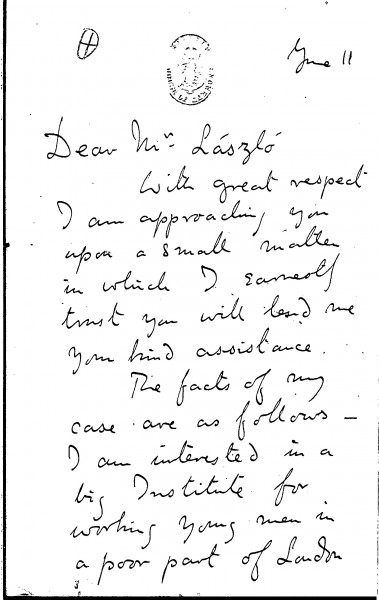 June 11
HOUSE OF COMMONS
Dear Mr. László
With great respect
I am approaching you
upon a small matter
in which I earnestly
trust you will lend me
your kind assistance.
The facts of my
case are as follows –
I am interested in a
big Institute for
working young men in
a poor part of London